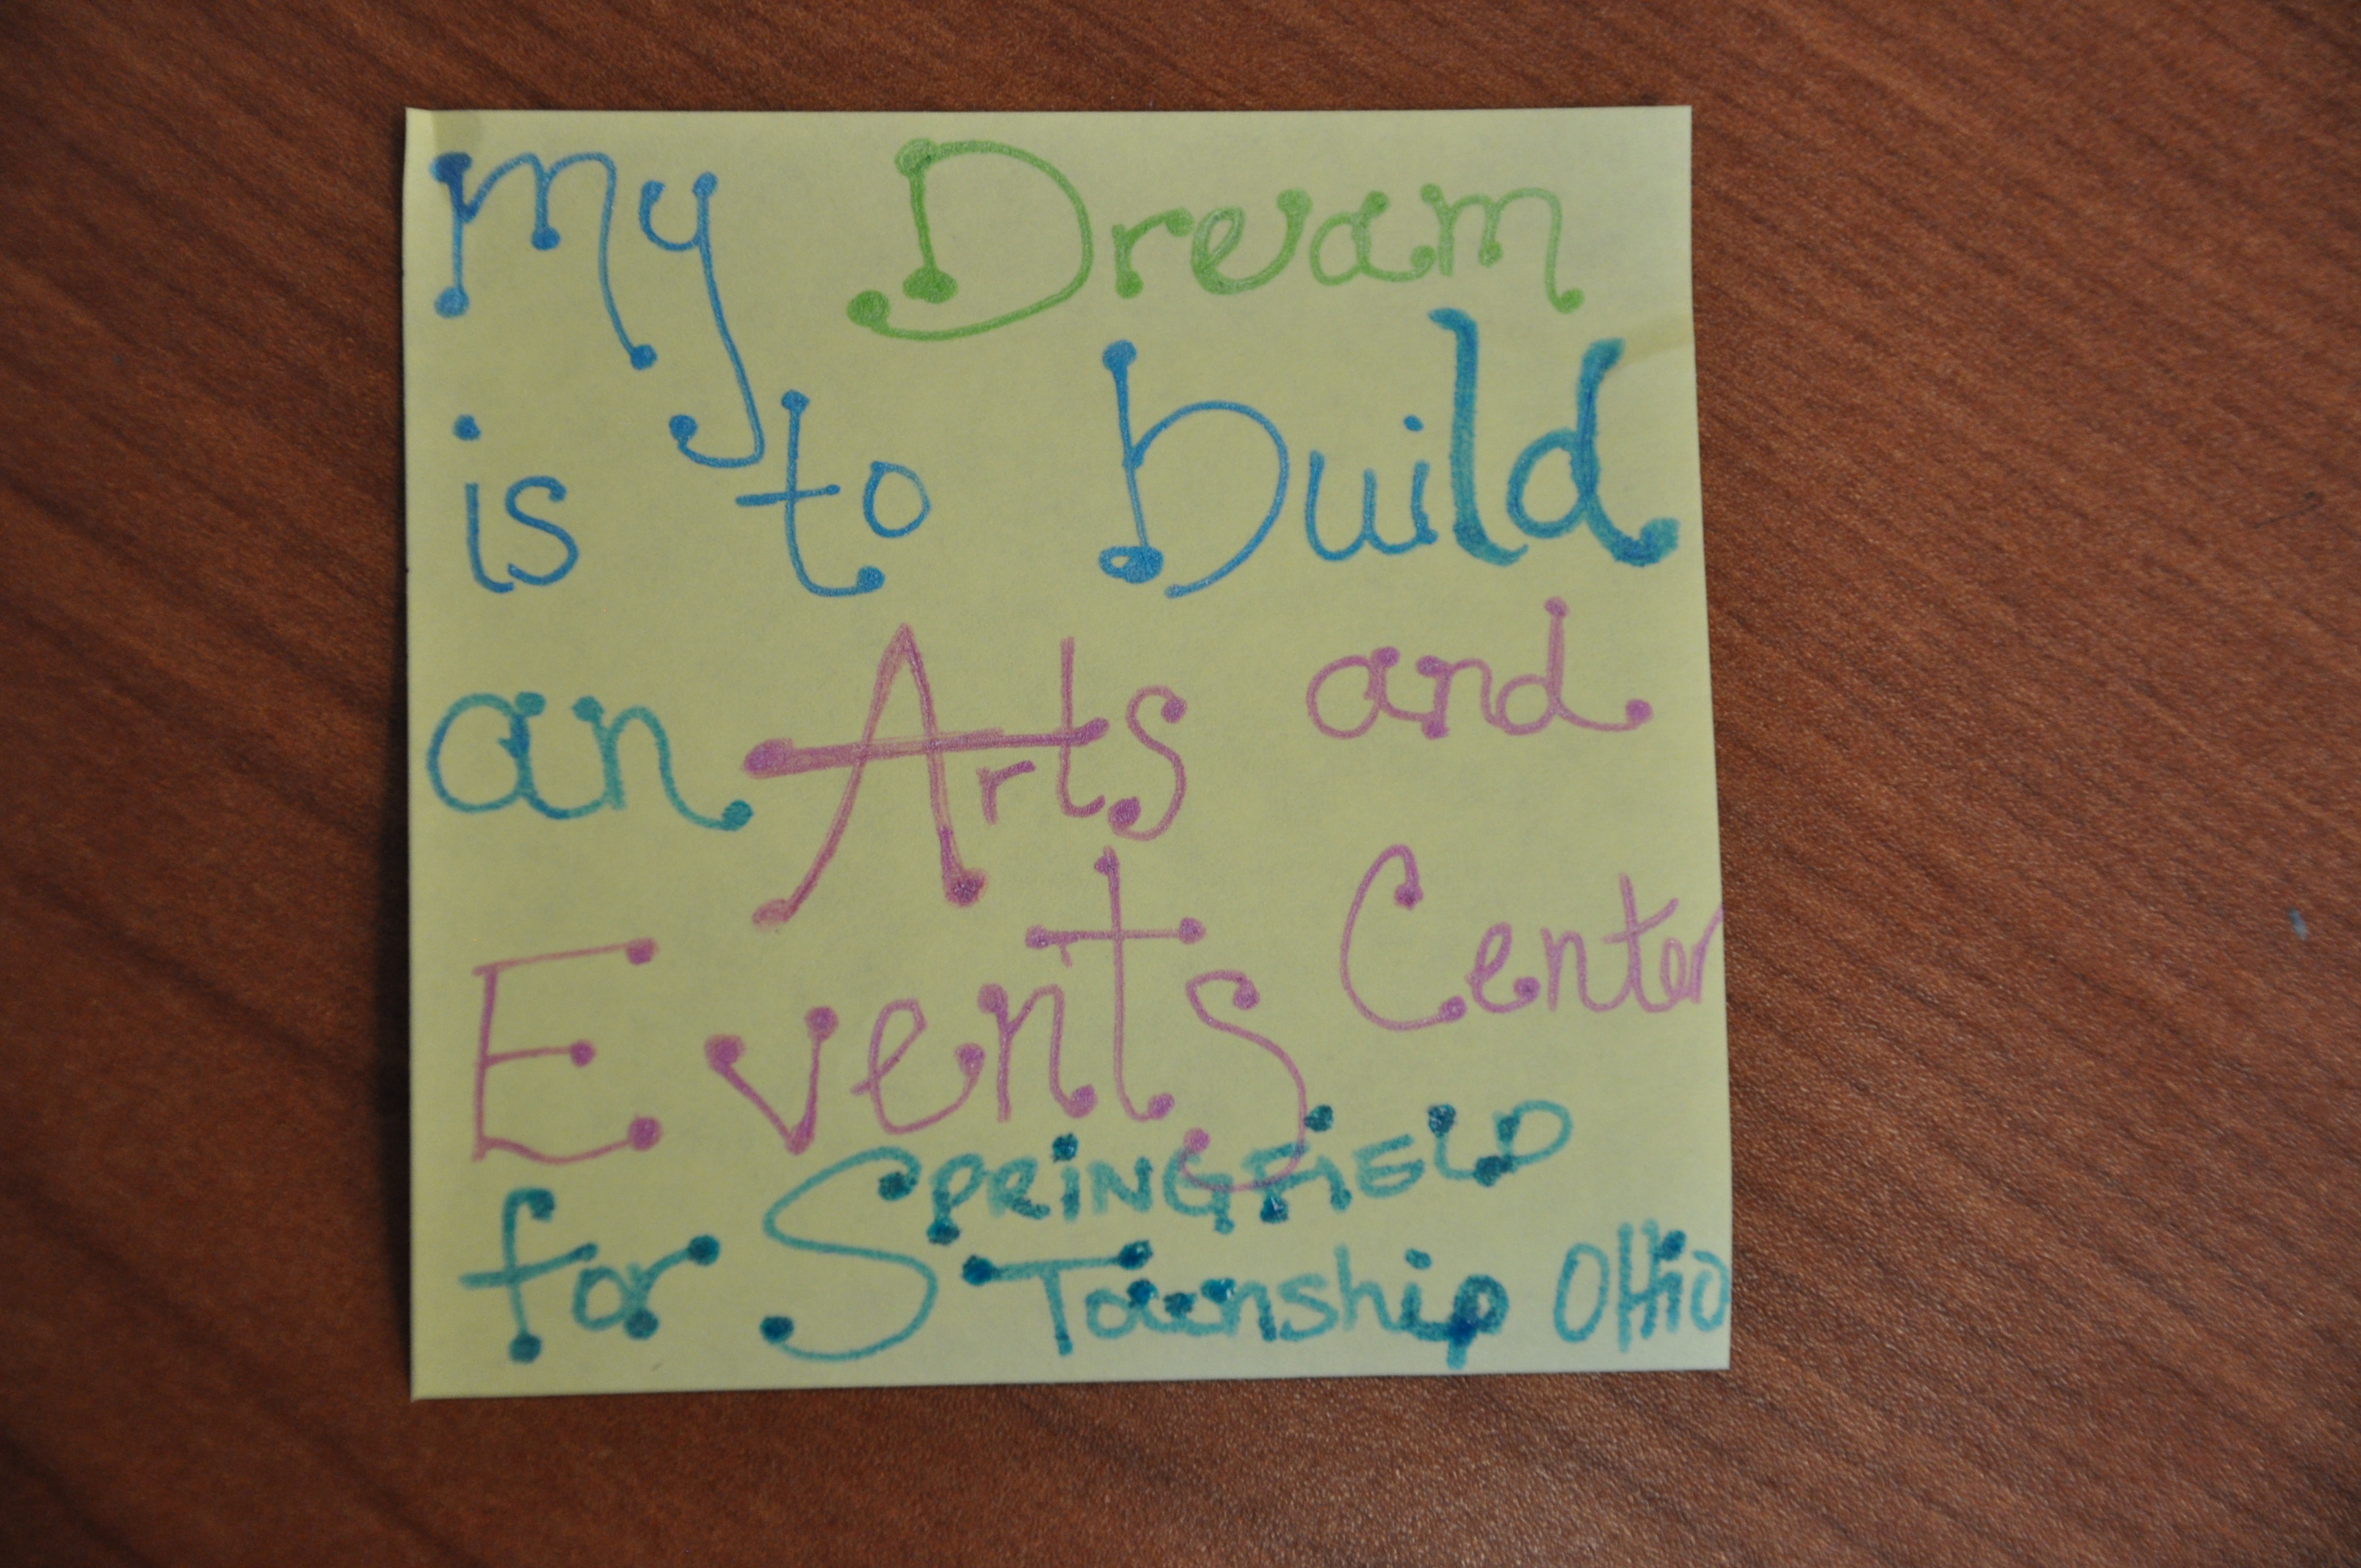 My Dream
is to build
an Arts and
Events Center
for SPRiNGFiELD
Township OHio